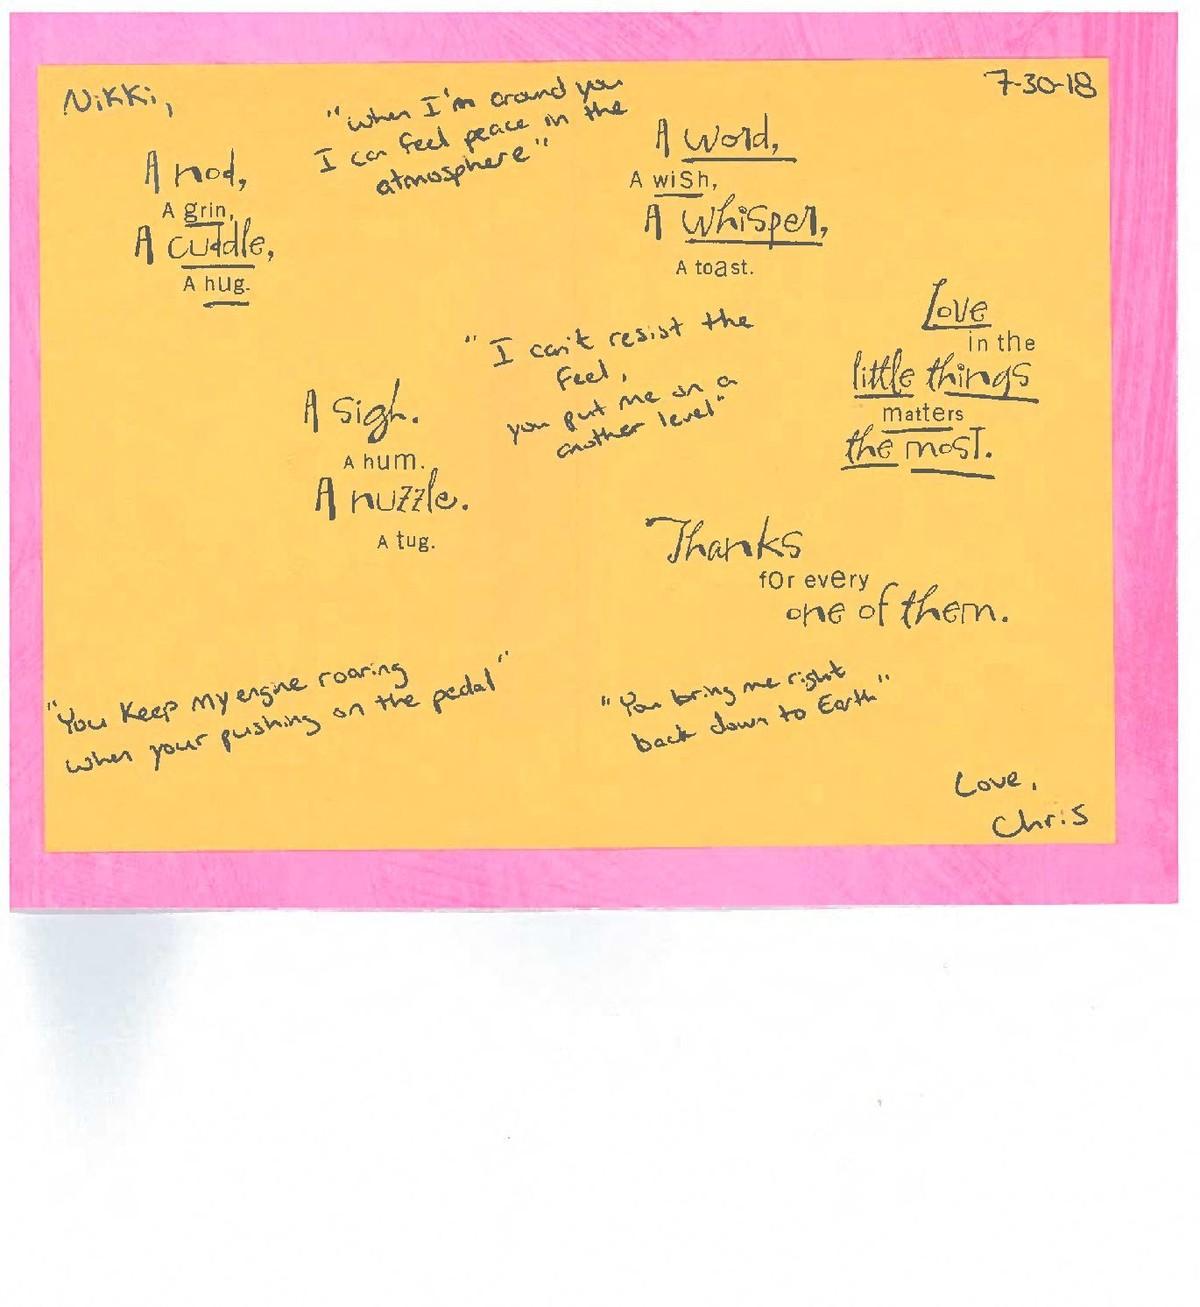 Nikki,
7-30-18
"when I'm around you
I can feel peace in the
atmosphere"
A nod,
A grin,
A cuddle,
A hug.
A word,
A wish,
A whisper,
A toast.
"I can't resist the
feel,
you put me on a
another level"
A sigh.
A hum.
A nuzzle.
A tug.
Love
in the
little things
matters
the most.
Thanks
for every
one of them.
"You Keep my engine roaring
when your pushing on the pedal"
"You bring me right
back down to Earth"
Love,
Chris